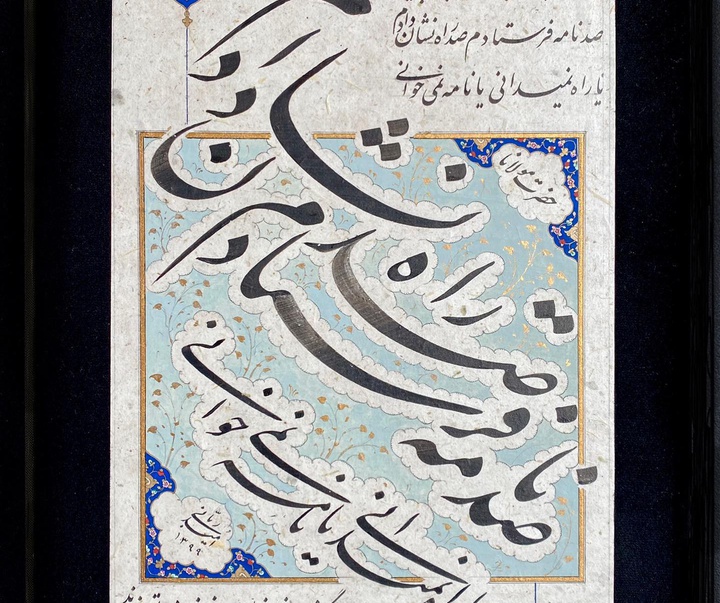 صد نامه فرستادم صد راه نشان دادم
یا راه نمیدانی یا نامه نمی خوانی
حضرت مولانا
صد نامه فرستادم
صد راه نشان دادم
یا نامه نمی خوانی
نمیدانی
۱۳۹۹